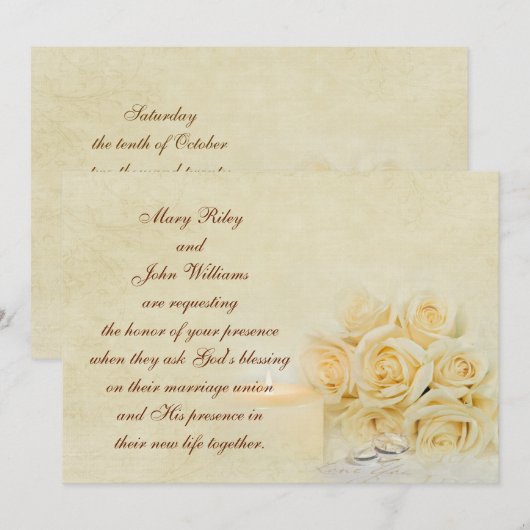 Saturday
the tenth of October
two thousand twenty
Mary Riley
and
John Williams
are requesting
the honor of your presence
when they ask God's blessing
on their marriage union
and His presence in
their new life together.